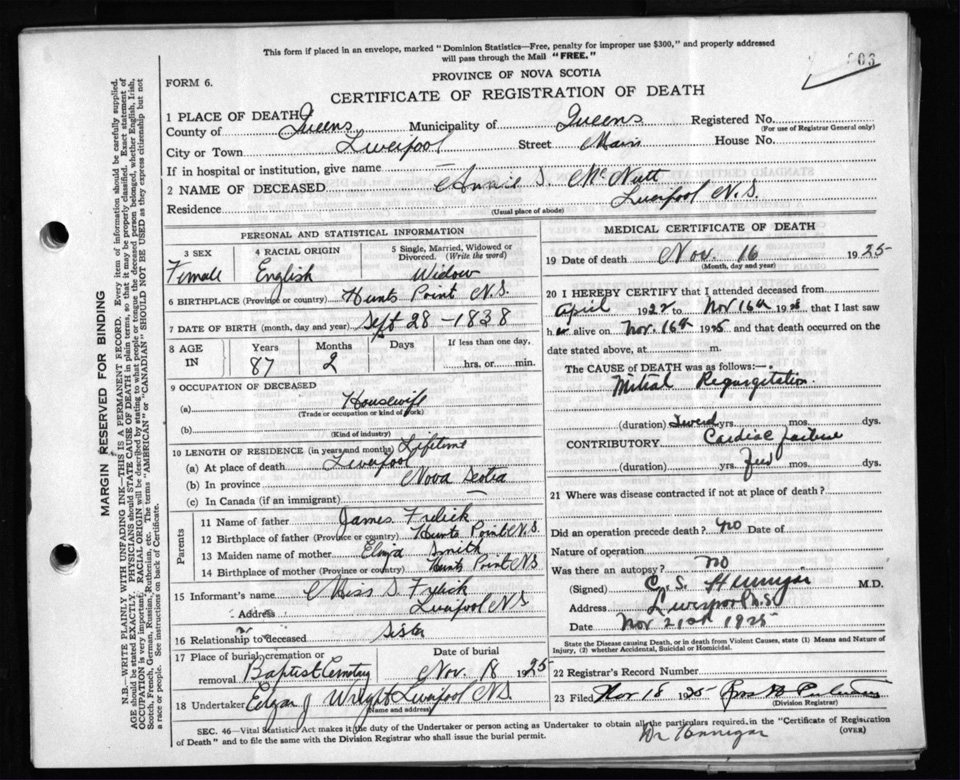 This form if placed in an envelope, marked "Dominion Statistics—Free, penalty for improper use $300," and properly addressed
will pass through the Mail "FREE."
603
FORM 6.
PROVINCE OF NOVA SCOTIA
CERTIFICATE OF REGISTRATION OF DEATH
1 PLACE OF DEATH
County of Queens Municipality of Queens Registered No.
(For use of Registrar General only)
City or Town Liverpool Street Main House No.
If in hospital or institution, give name —
2 NAME OF DECEASED Annie S. McNutt
Residence Liverpool N.S.
(Usual place of abode)
PERSONAL AND STATISTICAL INFORMATION
3 SEX
Female
4 RACIAL ORIGIN
English
5 Single, Married, Widowed or
Divorced. (Write the word)
Widow
6 BIRTHPLACE (Province or country) Hunts Point N.S.
7 DATE OF BIRTH (month, day and year) Sept 28 - 1838
8 AGE
IN
Years
87
Months
2
Days
If less than one day,
hrs. or min.
9 OCCUPATION OF DECEASED
(a) Housewife
(Trade or occupation or kind of work)
(b)
(Kind of industry)
10 LENGTH OF RESIDENCE (in years and months) Lifetime
(a) At place of death Liverpool
(b) In province Nova Scotia
(c) In Canada (if an immigrant)
Parents
11 Name of father James Frelick
12 Birthplace of father (Province or country) Hunts Point N.S.
13 Maiden name of mother Smith
14 Birthplace of mother (Province or country) Hunts Point N.S
15 Informant's name Miss S. Frelick
Address Liverpool N.S
16 Relationship to deceased Sister
17 Place of burial, cremation or
removal Baptist Cemetry
Date of burial
Nov. 18 1925
18 Undertaker Edgar J Wright Liverpool N.S
(Name and address)
MEDICAL CERTIFICATE OF DEATH
19 Date of death Nov. 16 1925
(Month, day and year)
20 I HEREBY CERTIFY that I attended deceased from
April 1922 to Nov 16th 1925 that I last saw
her alive on Nov. 16th 1925 and that death occurred on the
date stated above, at m.
The CAUSE OF DEATH was as follows:—
Mitral Regurgitation.
(duration) yrs. mos. dys.
CONTRIBUTORY Cardiac failure
(duration) yrs. few mos. dys.
21 Where was disease contracted if not at place of death?
Did an operation precede death? no Date of
Nature of operation
Was there an autopsy? no
(Signed) C. S. Hennigar M.D.
Address Liverpool N.S.
Date Nov 21st 1925
State the Disease causing Death, or in death from Violent Causes, state (1) Means and Nature of
Injury, (2) whether Accidental, Suicidal or Homicidal.
22 Registrar's Record Number
23 Filed Nov 18 1925
(Division Registrar)
SEC. 46—Vital Statistics Act makes it the duty of the Undertaker or person acting as Undertaker to obtain all the particulars required in the "Certificate of Registration
of Death" and to file the same with the Division Registrar who shall issue the burial permit.
(OVER)
Dr Hennigar
MARGIN RESERVED FOR BINDING
N.B.—WRITE PLAINLY WITH UNFADING INK—THIS IS A PERMANENT RECORD. Every item of information should be carefully supplied.
AGE should be stated EXACTLY. PHYSICIANS should STATE CAUSE OF DEATH in plain terms, so that it may be properly classified. Exact statement of
OCCUPATION is very important. RACIAL ORIGIN will be described by stating to what people or tongue the deceased person belonged, whether English, Irish,
Scotch, French, German, Russian, Ruthenian, etc. The terms "AMERICAN" or "CANADIAN" SHOULD NOT BE USED as they express citizenship but not
a race or people. See instructions on back of Certificate.